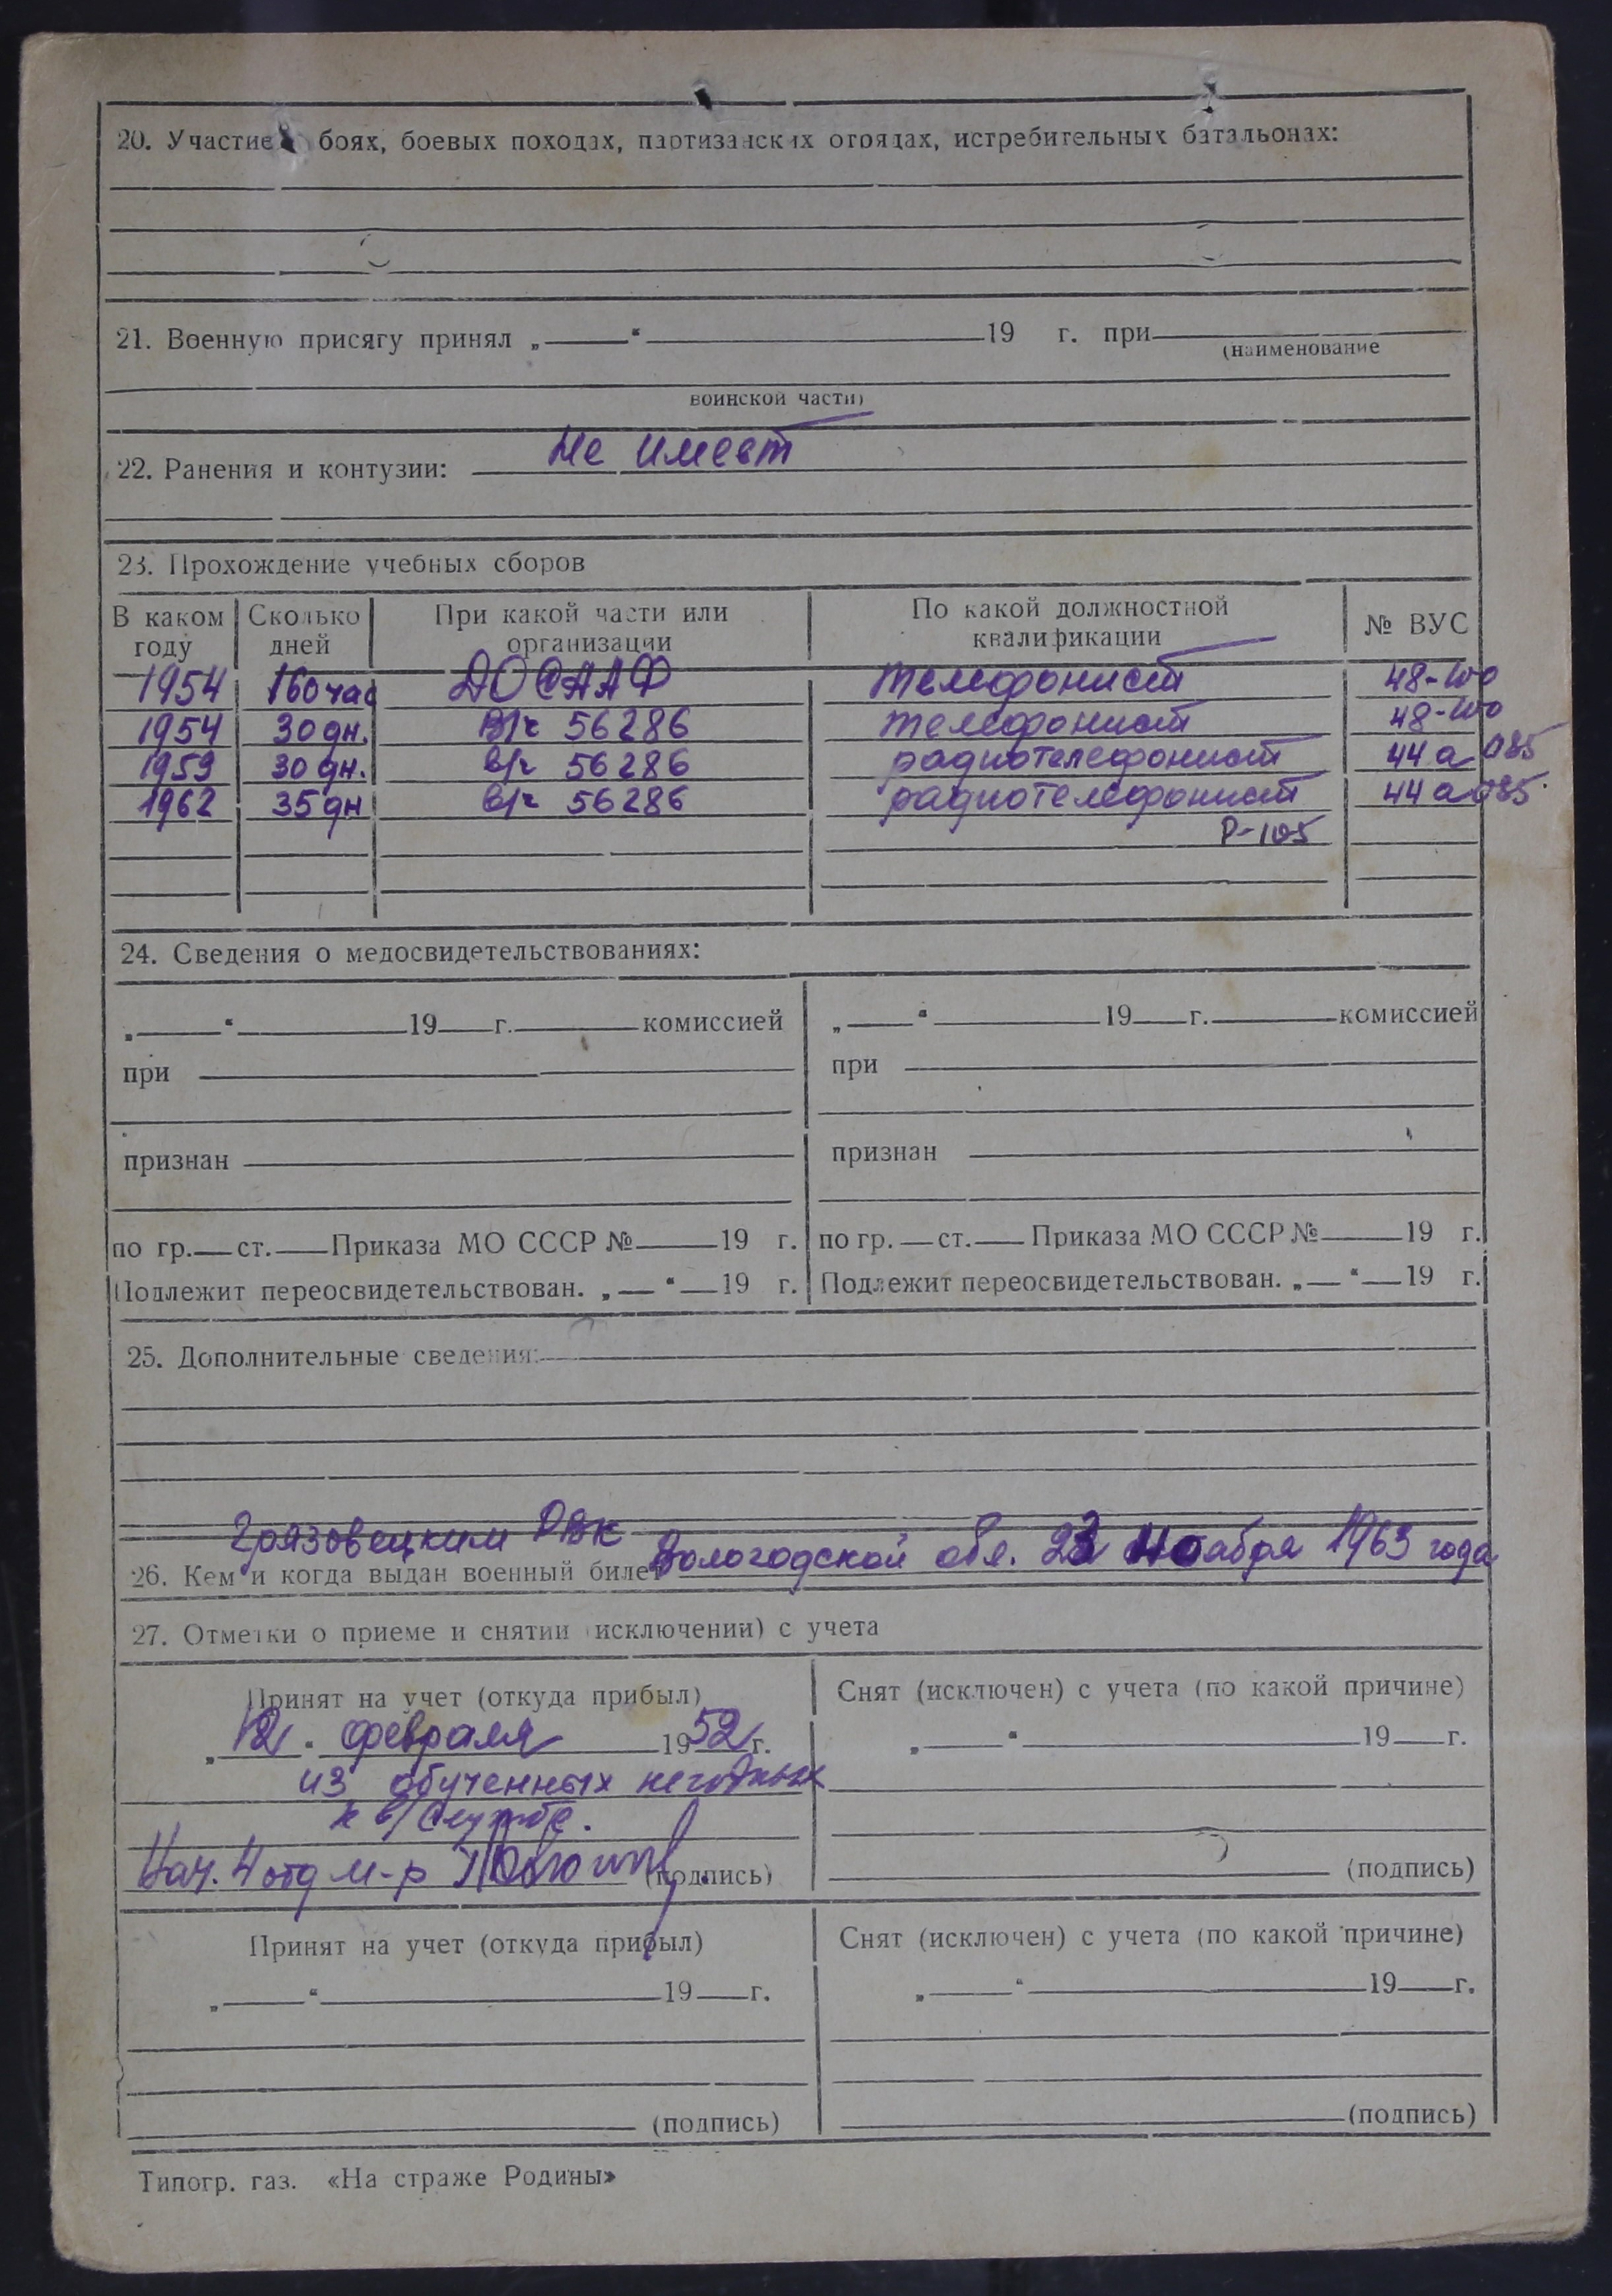 20. Участие боях, боевых походах, партизанских отрядах, истребительных батальонах:
21. Военную присягу принял „ “ 19 г. при
(наименование
воинской части)
Не имеет
22. Ранения и контузии:
23. Прохождение учебных сборов
В каком году Сколько дней При какой части или организации По какой должностной квалификации № ВУС
1954 160 час ДОСААФ телефонист 48-
1954 30 дн. в/ч 56286 телефонист 48-
1959 30 дн. в/ч 56286 радиотелефонист 44а 085
1962 35 дн в/ч 56286 радиотелефонист 44а 085
Р-105
24. Сведения о медосвидетельствованиях:
„ “ 19 г. комиссией „ “ 19 г. комиссией
при при
признан признан
по гр. ст. Приказа МО СССР № 19 г. по гр. ст. Приказа МО СССР № 19 г.
Подлежит переосвидетельствован. „ “ 19 г. Подлежит переосвидетельствован. „ “ 19 г.
25. Дополнительные сведения:
Грязовецким РВК
26. Кем и когда выдан военный билет Вологодской обл. 23 ноября 1963 года
27. Отметки о приеме и снятии (исключении) с учета
Принят на учет (откуда прибыл) Снят (исключен) с учета (по какой причине)
„12“ февраля 1952 г. „ “ 19 г.
из обученных негодных
к в/службе.
Нач. 4 отд м-р (подпись) (подпись)
Принят на учет (откуда прибыл) Снят (исключен) с учета (по какой причине)
„ “ 19 г. „ “ 19 г.
(подпись) (подпись)
Типогр. газ. «На страже Родины»